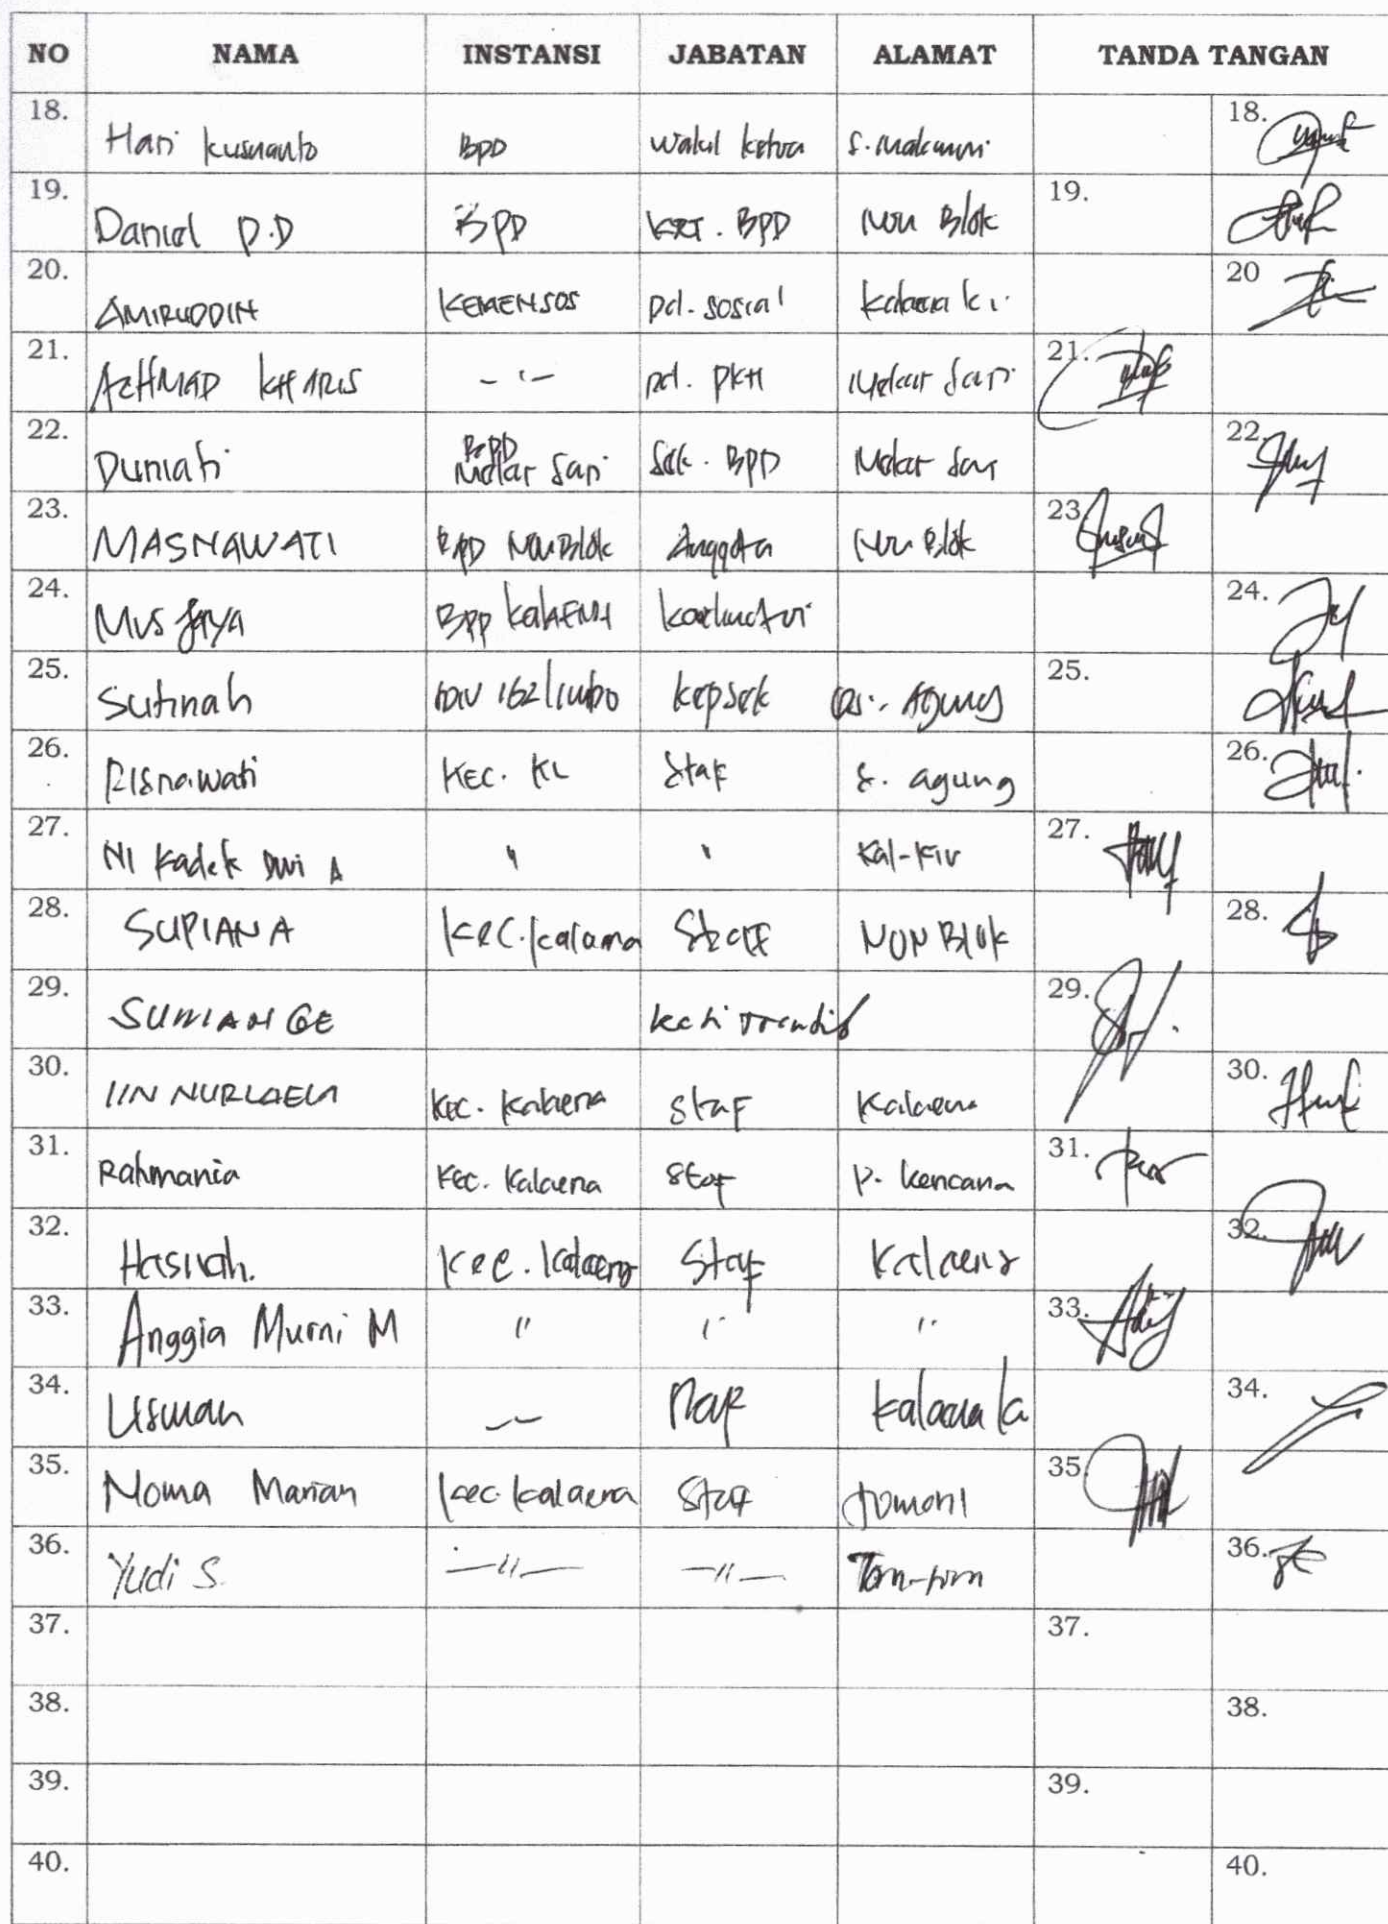 NO NAMA INSTANSI JABATAN ALAMAT TANDA TANGAN
18. Hari Kusnanto BPD Wakil Ketua S. Makmur 18.
19. Daniel P.D BPD KET. BPD Non Blok 19.
20. AMIRUDDIN KEMENSOS Pd. Sosial Kalaena Ki 20
21. ACHMAD KHARIS - ' - Pd. PKH Mekar Sari 21.
22. Duniati BPD Mekar Sari Sek. BPD Mekar Sari 22.
23. MASNAWATI BPD Non Blok Anggota Non Blok 23.
24. Mus Jaya BPP Kalaena 24.
25. Sutinah Kepsek Agung 25.
26. Risnawati Kec. KL Staf S. agung 26.
27. NI Kadek Dwi A " " Kal-Kiv 27.
28. SUPIANA Kec. Kalaena Staf NON Blok 28.
29. 29.
30. IIN NURLAELA Kec. Kalaena Staf Kalaena 30.
31. Rahmania Kec. Kalaena Staf P. Kencana 31.
32. Kec. Kalaena Staf Kalaena 32.
33. Anggia Murni M " " " 33.
34. Usman -- Staf Kalaena 34.
35. Kec. Kalaena Staf Tomoni 35
36. Yudi S. —"— —"— Tom-tim 36.
37. 37.
38. 38.
39. 39.
40. 40.